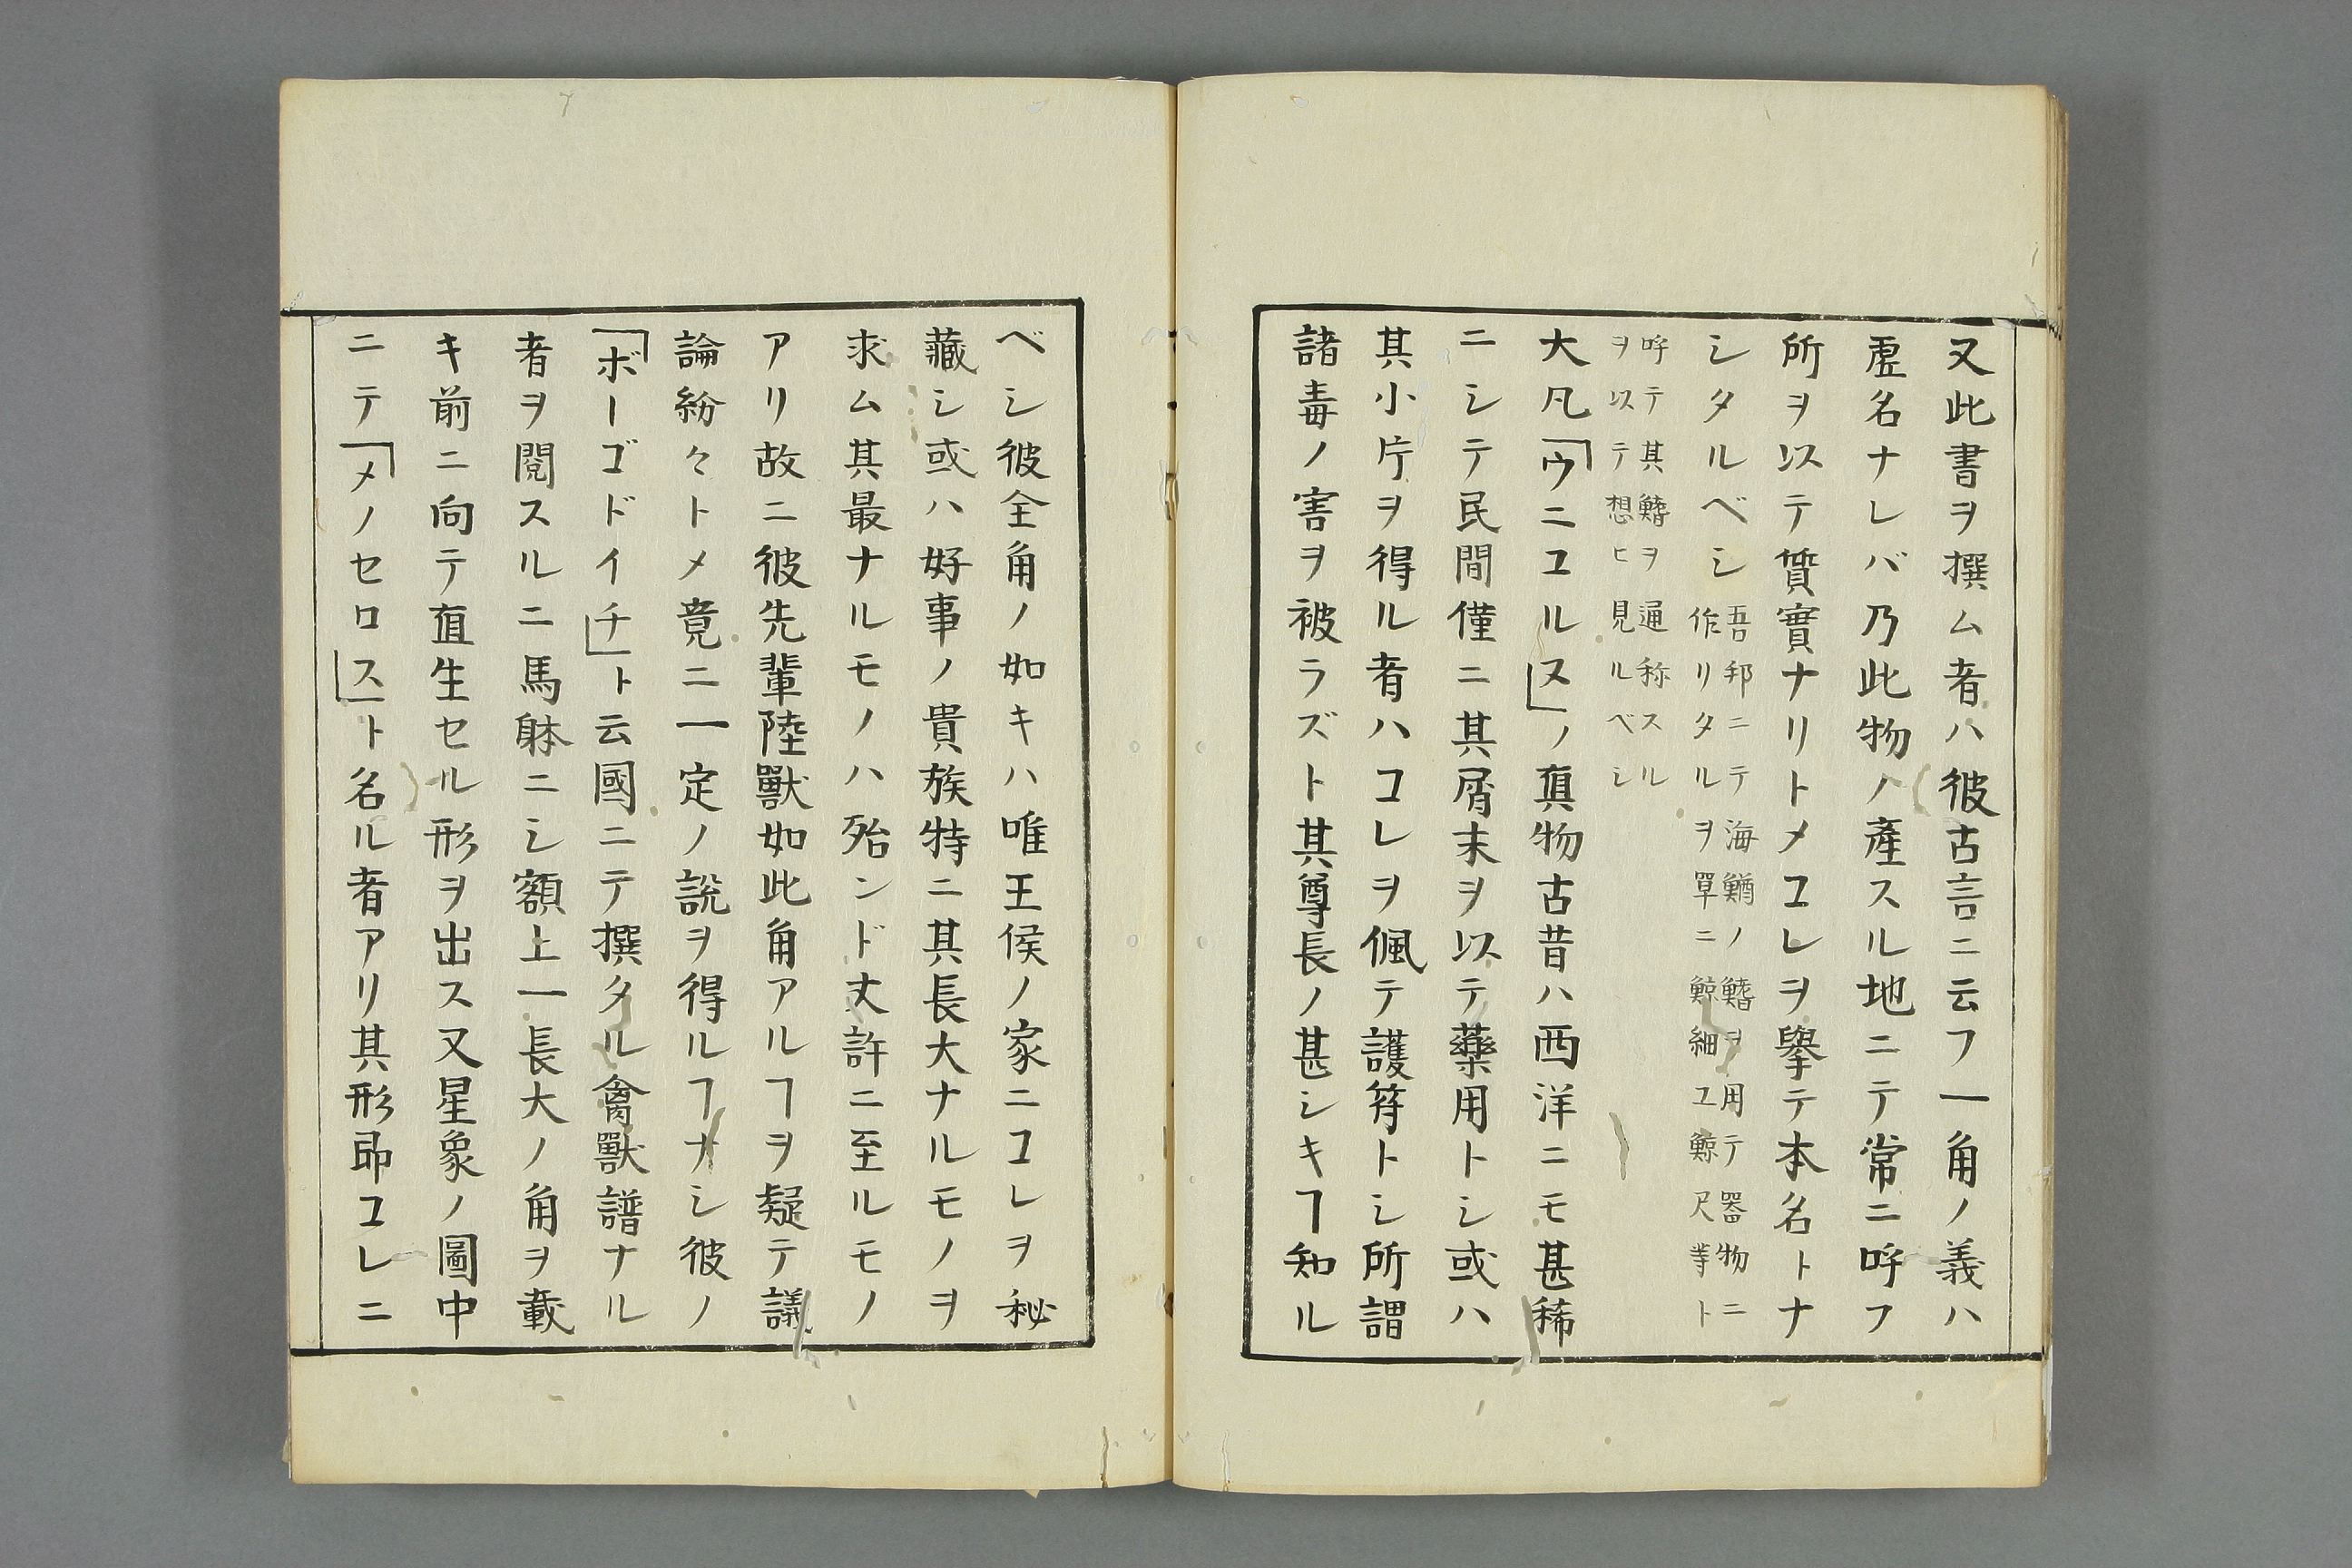 又此書ヲ撰ム者ハ彼古言ニ云フ一角ノ義ハ
虚名ナレバ乃此物ノ產スル地ニテ常ニ呼フ
所ヲ以テ質實ナリトメコレヲ擧テ本名トナ
シタルベシ吾邦ニテ海鰌ノ鰭ヲ用テ器物ニ
作リタルヲ單ニ鯨細工鯨尺等ト
呼テ其鰭ヲ通称スル
ヲ以テ想ヒ見ルベシ
大凡「ウニコルス」ノ眞物古昔ハ西洋ニモ甚稀
ニシテ民間僅ニ其屑末ヲ以テ藥用トシ或ハ
其小片ヲ得ル者ハコレヲ佩テ護符トシ所謂
諸毒ノ害ヲ被ラズト其尊長ノ甚シキヿ知ル
ベシ彼全角ノ如キハ唯王侯ノ家ニコレヲ秘
藏シ或ハ好事ノ貴族特ニ其長大ナルモノヲ
求ム其最ナルモノハ殆ンド丈許ニ至ルモノ
アリ故ニ彼先輩陸獸如此角アルヿヲ疑テ議
論紛々トメ竟ニ一定ノ說ヲ得ルヿナシ彼ノ
「ボーゴドイチ」ト云國ニテ撰タル禽獸譜ナル
者ヲ閲スルニ馬躰ニシ額上一長大ノ角ヲ戴
キ前ニ向テ直生セル形ヲ出ス又星象ノ圖中
ニテ「メノセロス」ト名ル者アリ其形卽コレニ